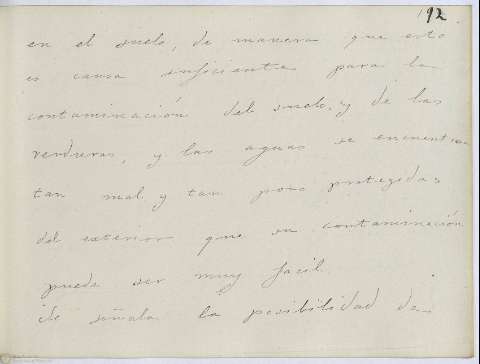 192
en el suelo, de manera que esto
es causa suficiente para la
contaminación del suelo, y de las
verduras, y las aguas se encuentran
tan mal y tan poco protegidas
del exterior que su contaminación
puede ser muy facil.
Se señala la posibilidad de